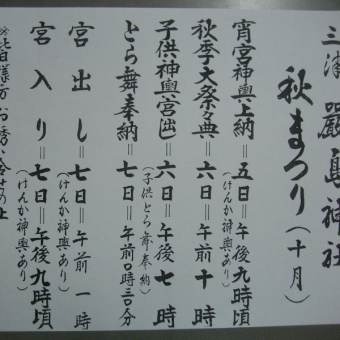 三津嚴島神社
秋まつり（十月）
宵宮神輿上納＝五日＝午後九時頃
（けんか神輿あり）
秋季大祭々典＝六日＝午前十時
子供神輿宮出＝六日＝午後七時
（子供とら舞奉納）
とら舞奉納＝七日＝午前0時三0分
宮出し＝七日＝午前一時
（けんか神輿あり）
宮入り＝七日＝午後九時頃
（けんか神輿あり）
※皆様方お誘い合せの上